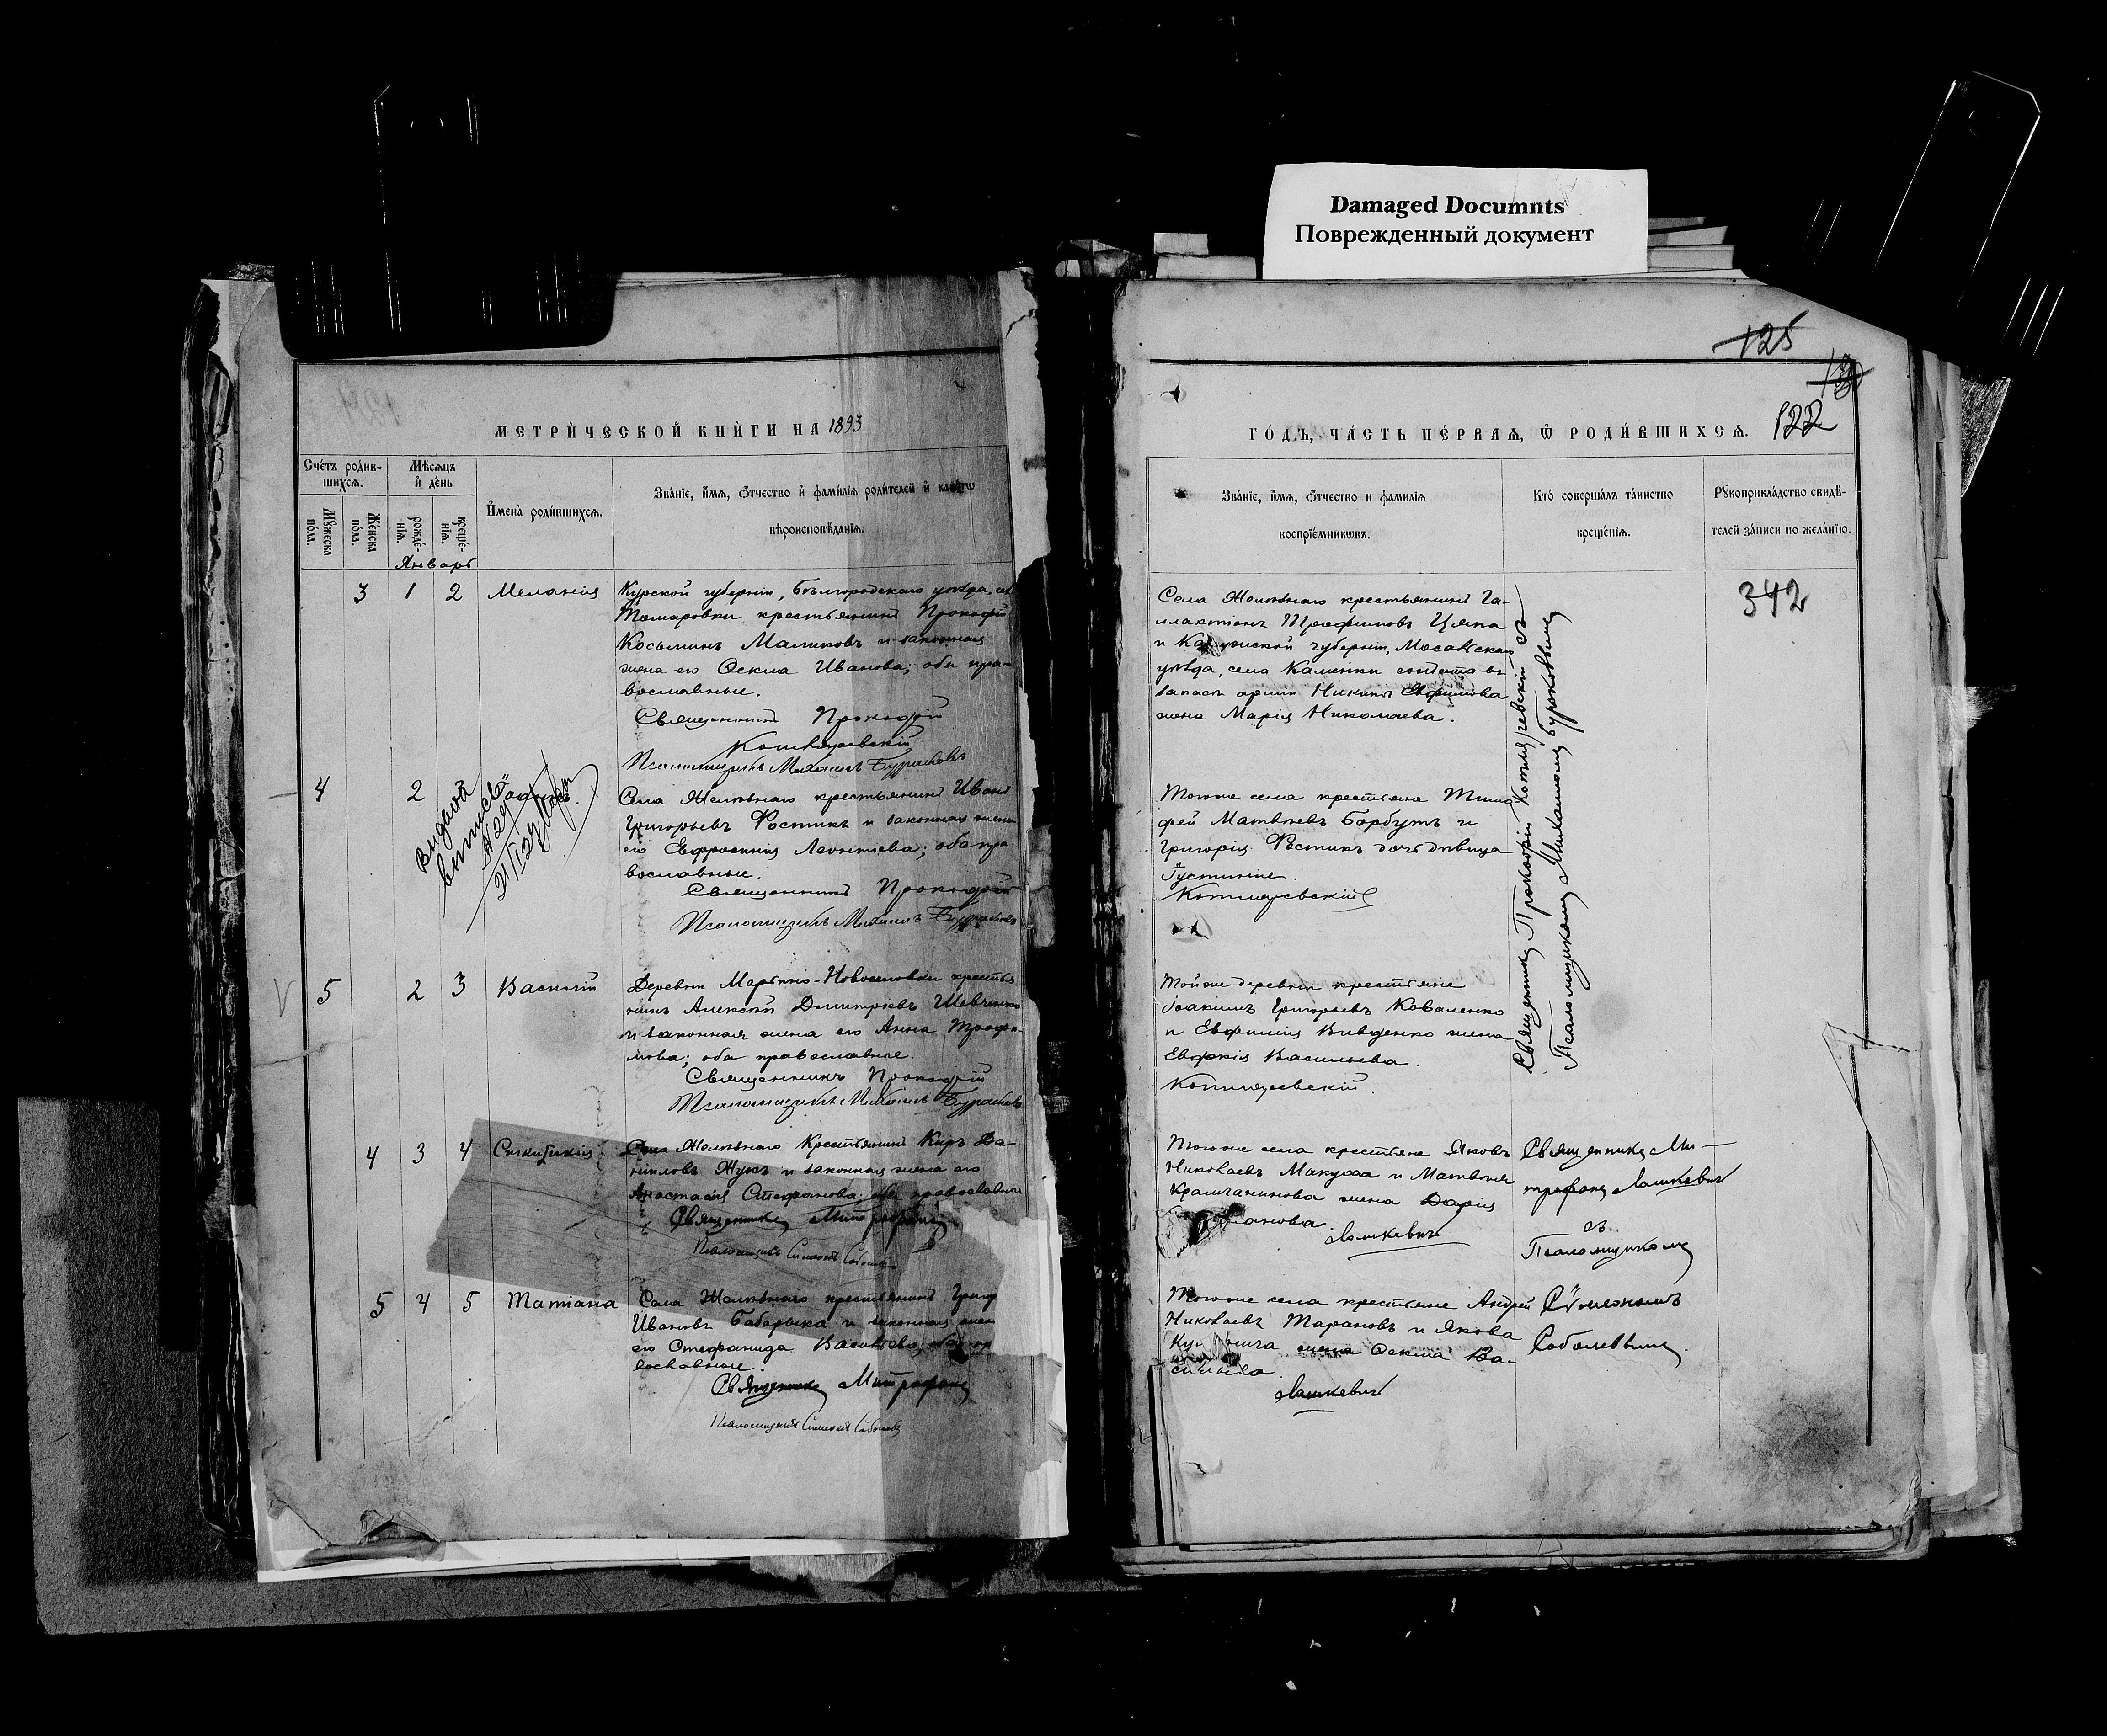 Damaged Documnts
Поврежденный документ
125
122
МЕТРИ́ЧЕСКОЙ КНИ́ГИ НА 1893
Счетъ родив-
шихсѧ.
Мужеска
пола.
Женска
пола.
Мѣсѧцъ
и день
рожде-
нїѧ.
креще-
нїѧ.
Январь
Имена родившихсѧ.
Званїе, имѧ, ѻтчество и фамилїѧ родителей и какогѡ
вѣроисповѣданїѧ.
3 1 2 Меланія
Курской губерніи, Бѣлгородскаго уѣзда, сл.
Томаровки крестьянинъ Прокофій
Косьминъ Маликовъ и законная
жена его Ѳекла Иванова; оба пра-
вославные.
Священникъ Прокофій
Котляревскій
Псаломщикъ Михаилъ Бураковъ
4 2
Выданой
выписъ
Села Желѣзнаго крестьянинъ Иванъ
Григорьевъ Костикъ и законная жена
его Евфросинія Леонтіева; оба пра
вославные.
Священникъ Прокофій
Псаломщикъ Михаилъ Бураковъ
5 2 3 Василій
Деревни Марьино-Новоселовки крестья
нинъ Алексѣй Димитріевъ Шевченко
и законная жена его Анна Трофи-
мова; оба православные.
Священникъ Прокофій
Псаломщикъ Михаилъ Бураковъ
4 3 4
Села Желѣзнаго Крестьянинъ Киръ Да-
ниловъ Жукъ и законная жена его
Анастасія Стефанова; оба православные
Священникъ Митрофанъ
Псаломщикъ Симеонъ
5 4 5 Татіана
Села Желѣзнаго крестьянинъ Григор
Ивановъ Бабарыка и законная жена
его Стефанида Васильева; оба пр
вославные.
Священникъ Митрофанъ
Псаломщикъ Симеонъ
ГО́ДЪ, ЧА́СТЬ ПЕ́РВАѦ, Ѿ РОДИ́ВШИХСѦ.
Званїе, имѧ, ѻтчество и фамилїѧ
воспрїемникѡвъ.
Кто совершалъ таинство
крещенїѧ.
Рукоприкладство свидѣ-
телей записи по желанїю.
Села Желѣзнаго крестьянинъ Га-
лактіонъ Трофимовъ Цяпа
и губерніи, Мосальскаго
уѣзда, села Каменки
запасъ арміи Никиты Евфимова
жена Марія Николаева.
342
Священникъ Прокофій Котляревскій съ
Псаломщикомъ Михаиломъ Бураковымъ
Того же села крестьяне Тимо
фей Матвѣевъ Борбутъ и
Григорія Костикъ дочь дѣвица
Іустинія.
Котляревскій
Той же деревни крестьяне
Іоакимъ Григорьевъ Коваленко
и Евфимія Вивденко жена
Евфкія Васильева.
Котляревскій.
Того же села крестьяне Яковъ
Николаевъ Макуха и Матвѣя
Крамчанинова жена Дарія
Лашкевичъ
Священникъ Ми-
трофанъ Лашкевичъ
съ
Псаломщикомъ
Того же села крестьяне Андрей
Николаевъ Тарановъ и Якова
жена Ѳекла Ва-
сильева.
Лашкевичъ
Сѵмеономъ
Соболевымъ.